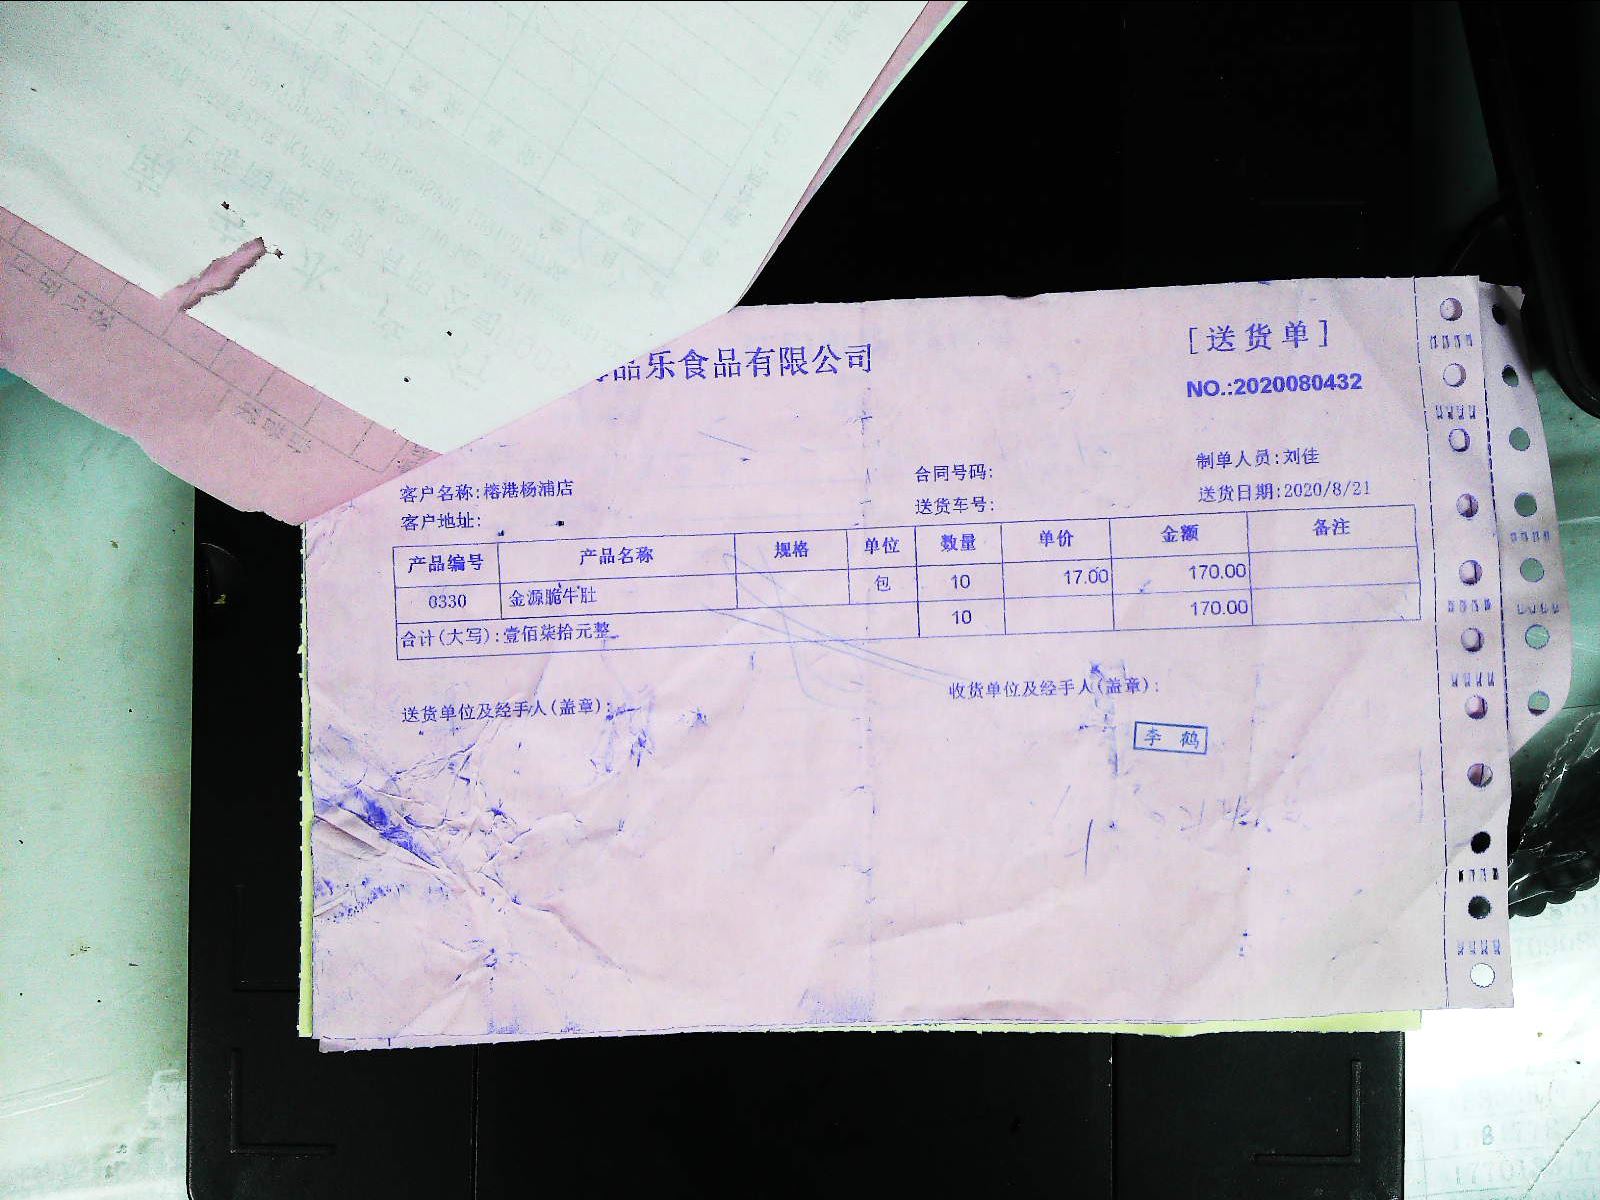 品乐食品有限公司
[送货单]
NO.:2020080432
客户名称:榕港杨浦店
合同号码:
制单人员:刘佳
客户地址:
送货车号:
送货日期:2020/8/21
产品编号 产品名称 规格 单位 数量 单价 金额 备注
0330 金源脆牛肚 包 10 17.00 170.00
合计(大写):壹佰柒拾元整 10 170.00
送货单位及经手人(盖章):
收货单位及经手人(盖章):
李 鹤